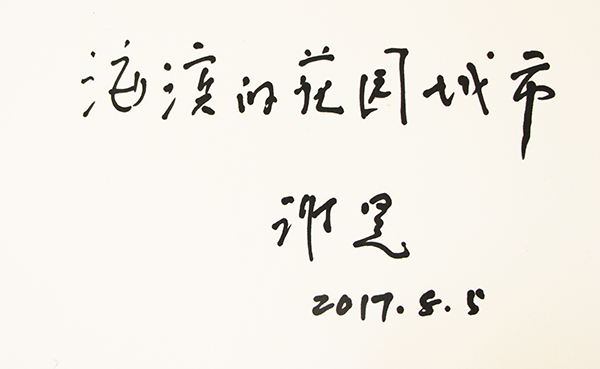 海滨的花园城市
谢冕
2017.8.5